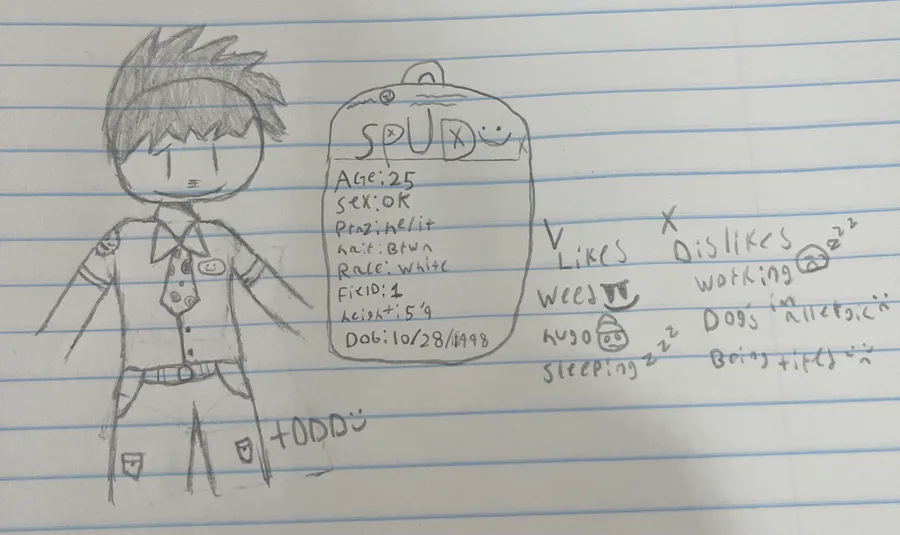 SPUD
Age:25
Sex:OK
Prnz:he/it
hair:Brwn
Race: White
FizID:1
height:5'9
Dob:10/28/1998
V
Likes
weed
hugo
sleeping zzz
X
Dislikes
working zzz
Dogs im allergic :(
Being tired :(
TODD:)